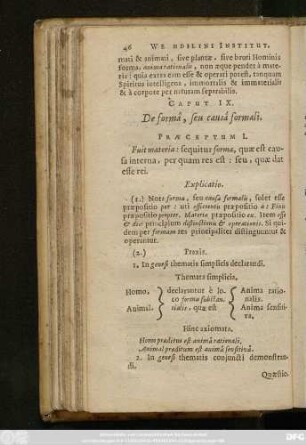 46 WENDELINI INSTITUT.
mati & animati, sive plantæ, sive bruti Hominis
forma, anima rationalis, non æque pendet à mate-
ria: quia extra eam esse & operari potest, tanquam
Spiritus intelligens, immortalis & immaterialis
& à corpore per naturam separabilis.
CAPUT IX.
De formâ, seu causâ formali.
PRÆCEPTUM I.
Fuit materia: sequitur forma, quæ est cau-
sa interna, per quam res est: seu, quæ dat
esse rei.
Explicatio.
(1.) Nota formæ, seu causæ formalis, solet esse
præpositio per: uti efficientis præpositio à: Finis
præpositio propter. Materiæ præpositio ex. Item esse
& dici principium distinctivum & operationis. Si qui-
dem per formam res principaliter distinguuntur &
operantur.
(2.) Praxis.
1. In genesi thematis simplicis declarandi.
Themata simplicia.
Homo. declarantur è lo- Anima ratio-
co formæ substan- nalis.
Animal. tialis, quæ est Anima sensiti-
va.
Hinc axiomata.
Homo præditus est animâ rationali,
Animal præditum est animâ sensitivâ.
2. In genesi thematis conjuncti demonstran-
di.
Quæstio.